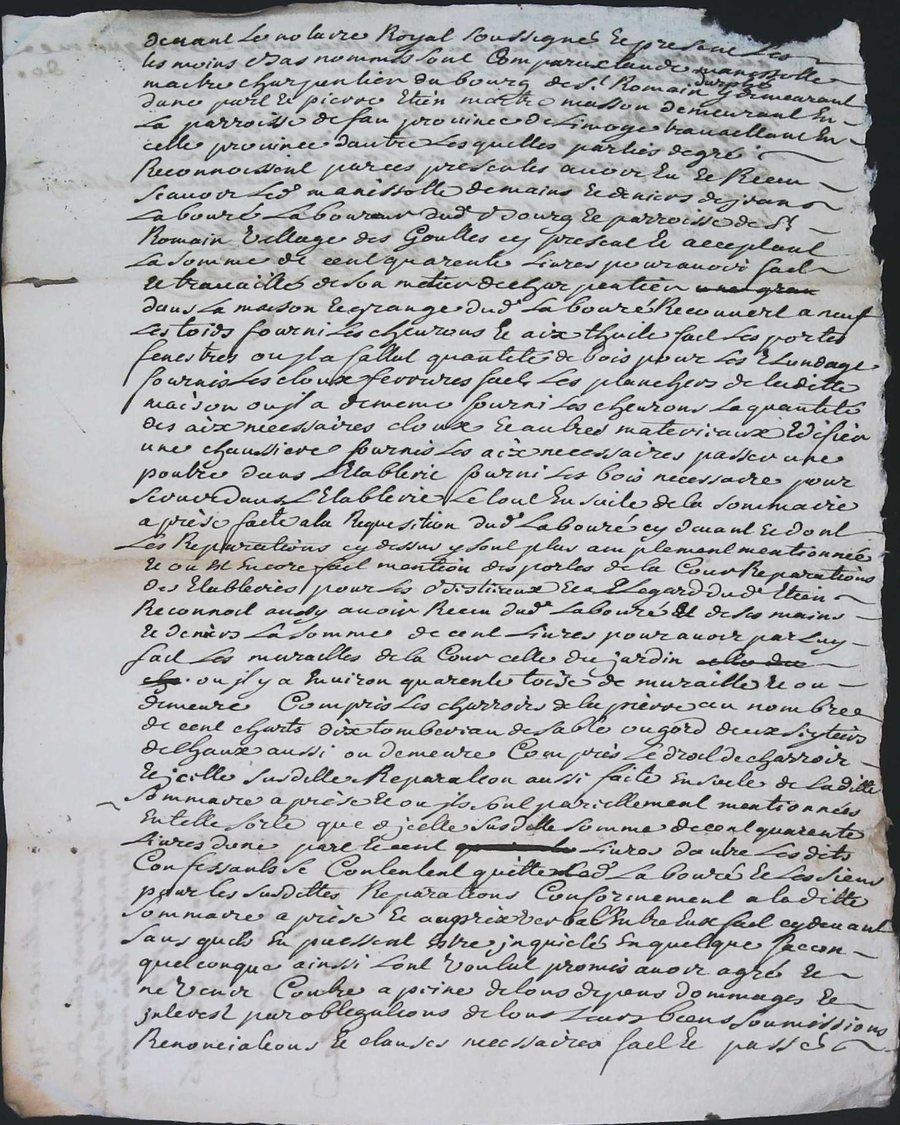 devant le notaire Royal soussigné et present les
tesmoins cybas nommés sont Comparux claude manissolle
maitre charpentier du bourg de St Romain y demeurant
dune part et pierre Etien maitre masson demeurant En
La parroisse de fau province de Limoge travaillant En
celle province dautre Lesquelles parties de gré
Reconnoissent par ces presentes avoir Eu et Receu
scavoir led manissolle de mains et deniers de
Labouré Laboureur dud bourg et parroisse de St
Romain village des Goulles cy present et acceptant
La somme de cent quarente Livres pour avoir fael
et travaillé de son metier de charpentier
dans La maison et grange dud Labouré Recouvert a neuf
Les toids fourni Les chevrons et aix thuile fael Les portes
fenestres ou jl a fallut quantité de bois pour Les
fournis Les cloux ferrures fael Les planchers de laditte
maison ou jl a de meme fourni Les chevrons La quantité
des aix necessaires cloux et autres materieaux Edifier
une chaussiere fournis Les aix necessaires passer une
poutre dans L'Etablerie fourni Les bois necessaire pour
servir dans L'Etablerie Le tout En suite de la sommaire
aprise faite a la Requisition dud Labouré cy devant et dont
Les Reparations cy dessus y sont plus amplement mentionnée
et ou Est Encore fael mention des portes de la Cour Reparations
des Etableries pour Les bestieaux Et a L'Egard dud Etien
Reconnoit aussy avoir Receu dud Labouré et de ses mains
et deniers La somme de cent Livres pour avoir par Luy
fael Les murailles de la Cour celle du jardin
ou jl y a Environ quarente toise de muraille et ou
demeure Compris Les charroirs de la pierre au nombre
de cent charts dix tombereau de sable ou gord deux
de chaux aussi ou demeure Compris Le droit de charroir
et jcelle susdelle Reparation aussi faite En suite de Laditte
Sommaire aprise et ou jls sont pariellement mentionnées
En telle sorte que d jcelle susdelle somme de cent quarente
Livres dune part et cent Livres dautre Les dits
Confessants se Contentent quitte Led Labouré et Les siens
pour les susdittes Reparations Conformement a laditte
sommaire aprise et au prix verbal Entre Eux fael cy devant
sans quils En puessent Etre jnquietés En quelque faccon
quelconque ainsi Lont voulut promis avoir agré et
ne venir Contre a peine de tous depens dommages et
jnterest par obligations de tous Leurs biens Soumissions
Renonciations et clauses necessaires fael et passé